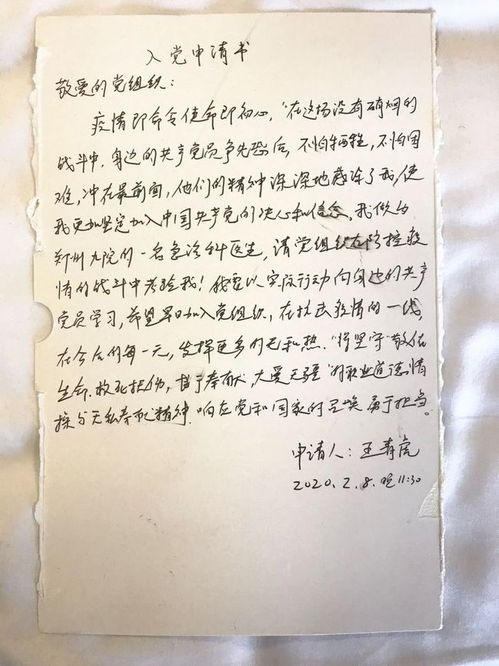 入党申请书
敬爱的党组织：
疫情即命令使命即初心，“在这场没有硝烟的
战斗中，身边的共产党员争先恐后，不怕牺牲，不怕困
难，冲在最前面，他们的精神深深地感染了我，使
我更加坚定加入中国共产党的决心和信念，我做为
郑州九院的一名急诊科医生，请党组织在防控疫
情的战斗中考验我！我要以实际行动向身边的共产
党员学习，希望早日加入党组织，在抗击疫情的一线，
在今后的每一天，发挥更多的光和热。“将坚守”敬佑
生命、救死扶伤，甘于奉献、大爱无疆”的职业道德情
操与无私奉献精神，响应党和国家的召唤，勇于担当。
申请人：王青虎
2020.2.8.晚11:30